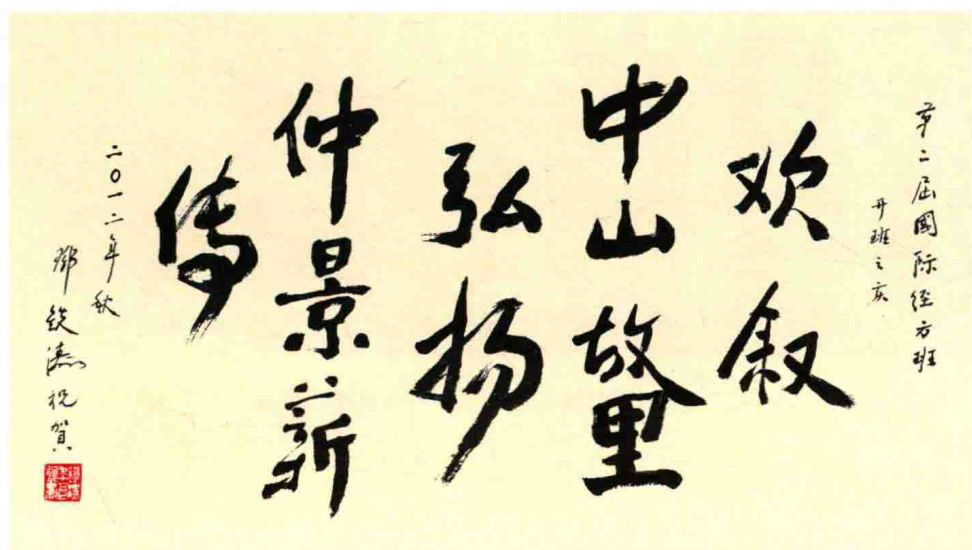 第二届國际经方班
开班之庆
欢叙
中山故里
弘扬
仲景薪
傳
二〇一二年秋
鄧铁涛祝賀